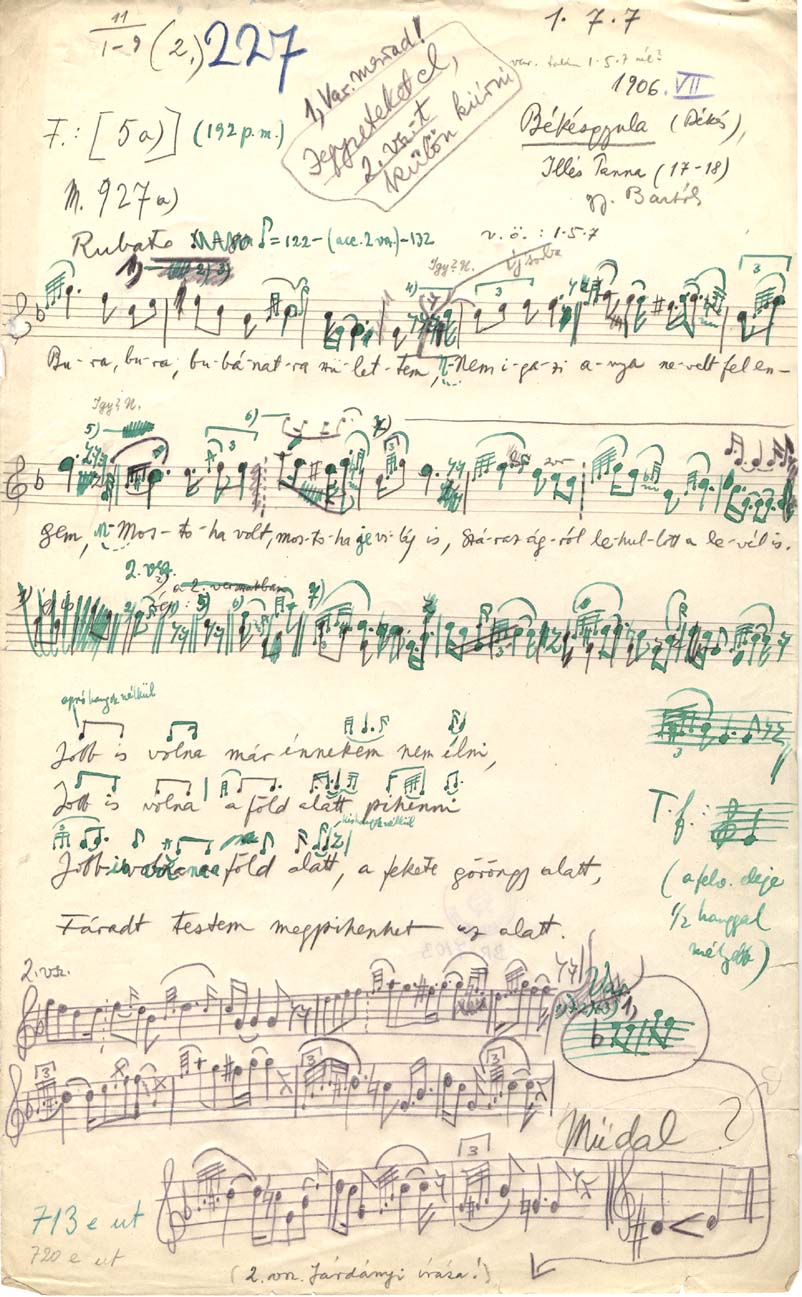 11
1-9 (2.) 227
1. 7. 7
1, Var. marad!
Jegyzeteket el,
2. vsz.t
külön kiírni
var. talán 1·5·7 nél?
1906. VII
F.: [5a)] (192 p.m.)
Békésgyula (Békés),
M. 927a)
Illés Panna (17-18)
gy. Bartók
Rubato ♪=122-(acc. 2 var.)-132
v. ö. : 1·5·7
Így? N. új sorba
3 3
Bu-ra, bu-ra, bu-bá-nat-ra szü-let-tem, Nem i-ga-zi a-nya ne-velt fel en-
Így? N.
5) 6) 7)
3 3
gem, Mos-to-ha volt, mos-to-ha je vi-lág is, Szá-raz ág-ról le-hul-lott a le-vél is.
2. vsz.
a 2. versszakban
7)
apró hangok nélkül
Jobb is volna már énnekem nem élni,
Jobb is volna a föld alatt pihenni
Jobb is volna föld alatt, a fekete göröngy alatt,
T. f. :
(a felv. eleje
1/2 hanggal
mélyebb)
Fáradt testem megpihenhet az alatt.
2. vsz.
Var.
1)
3 3 3
Műdal ?
3
713 e ut
720 e ut
(2. vsz. Járdányi írása!)